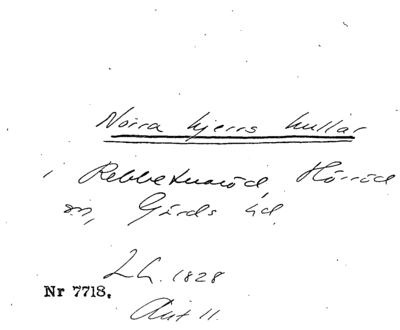 Norra kjerrs kullar
i Rebbetuaröd, Hörröd
sn, Gärds hd.
LA. 1828
Nr 7718.
Akt 11.